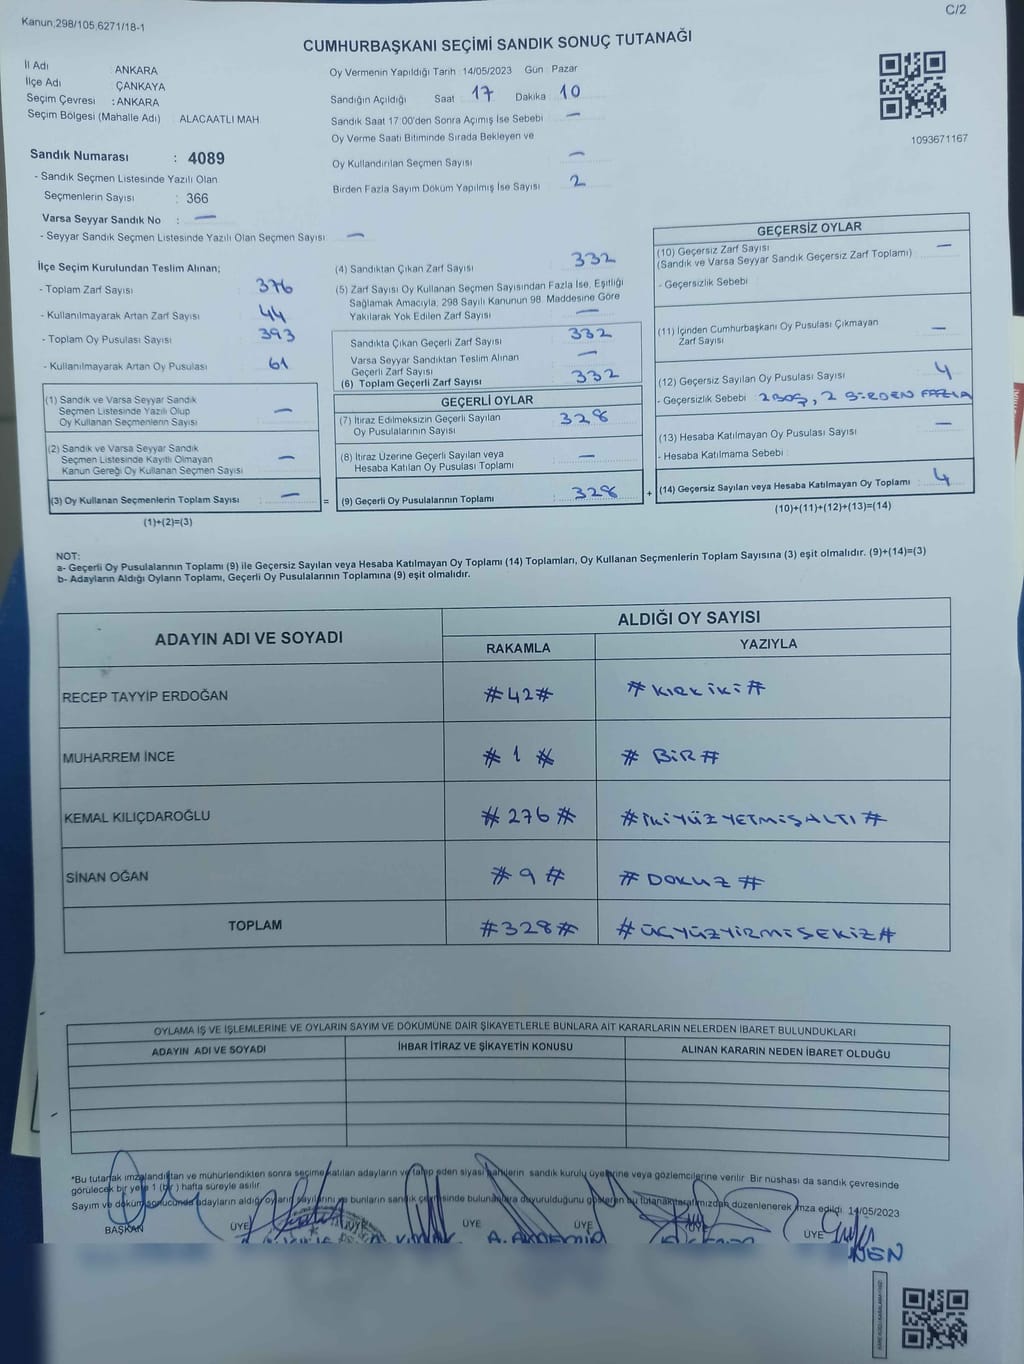 Kanun;298/105,6271/18-1
C/2
CUMHURBAŞKANI SEÇİMİ SANDIK SONUÇ TUTANAĞI
İl Adı ANKARA
İlçe Adı ÇANKAYA
Seçim Çevresi : ANKARA
Seçim Bölgesi (Mahalle Adı) ALACAATLI MAH
Oy Vermenin Yapıldığı Tarih 14/05/2023 Gün Pazar
Sandığın Açıldığı Saat 17 Dakika 10
Sandık Saat 17:00'den Sonra Açımış İse Sebebi —
Oy Verme Saati Bitiminde Sırada Bekleyen ve
Oy Kullandırılan Seçmen Sayısı —
Birden Fazla Sayım Döküm Yapılmış İse Sayısı 2
1093671167
Sandık Numarası : 4089
- Sandık Seçmen Listesinde Yazılı Olan
Seçmenlerin Sayısı : 366
Varsa Seyyar Sandık No : —
- Seyyar Sandık Seçmen Listesinde Yazılı Olan Seçmen Sayısı: —
İlçe Seçim Kurulundan Teslim Alınan;
- Toplam Zarf Sayısı 376
- Kullanılmayarak Artan Zarf Sayısı 44
- Toplam Oy Pusulası Sayısı 393
- Kullanılmayarak Artan Oy Pusulası 61
(1) Sandık ve Varsa Seyyar Sandık
Seçmen Listesinde Yazılı Olup
Oy Kullanan Seçmenlerin Sayısı —
(2) Sandık ve Varsa Seyyar Sandık
Seçmen Listesinde Kayıtlı Olmayan
Kanun Gereği Oy Kullanan Seçmen Sayısı —
(3) Oy Kullanan Seçmenlerin Toplam Sayısı : —
(1)+(2)=(3)
(4) Sandıktan Çıkan Zarf Sayısı 332
(5) Zarf Sayısı Oy Kullanan Seçmen Sayısından Fazla İse, Eşitliği
Sağlamak Amacıyla, 298 Sayılı Kanunun 98. Maddesine Göre
Yakılarak Yok Edilen Zarf Sayısı —
Sandıkta Çıkan Geçerli Zarf Sayısı 332
Varsa Seyyar Sandıktan Teslim Alınan
Geçerli Zarf Sayısı —
(6) Toplam Geçerli Zarf Sayısı 332
GEÇERLİ OYLAR
(7) İtiraz Edilmeksizin Geçerli Sayılan
Oy Pusulalarının Sayısı 328
(8) İtiraz Üzerine Geçerli Sayılan veya
Hesaba Katılan Oy Pusulası Toplamı —
= (9) Geçerli Oy Pusulalarının Toplamı 328
GEÇERSİZ OYLAR
(10) Geçersiz Zarf Sayısı —
(Sandık ve Varsa Seyyar Sandık Geçersiz Zarf Toplamı)
- Geçersizlik Sebebi
(11) İçinden Cumhurbaşkanı Oy Pusulası Çıkmayan
Zarf Sayısı —
(12) Geçersiz Sayılan Oy Pusulası Sayısı 4
- Geçersizlik Sebebi 2 BOŞ, 2 BİRDEN FAZLA
(13) Hesaba Katılmayan Oy Pusulası Sayısı —
- Hesaba Katılmama Sebebi
+ (14) Geçersiz Sayılan veya Hesaba Katılmayan Oy Toplamı 4
(10)+(11)+(12)+(13)=(14)
NOT:
a- Geçerli Oy Pusulalarının Toplamı (9) ile Geçersiz Sayılan veya Hesaba Katılmayan Oy Toplamı (14) Toplamları, Oy Kullanan Seçmenlerin Toplam Sayısına (3) eşit olmalıdır. (9)+(14)=(3)
b- Adayların Aldığı Oyların Toplamı, Geçerli Oy Pusulalarının Toplamına (9) eşit olmalıdır.
ADAYIN ADI VE SOYADI ALDIĞI OY SAYISI
RAKAMLA YAZIYLA
RECEP TAYYİP ERDOĞAN #42# #KIRKİKİ#
MUHARREM İNCE #1# #BİR#
KEMAL KILIÇDAROĞLU #276# #İKİYÜZYETMİŞALTI#
SİNAN OĞAN #9# #DOKUZ#
TOPLAM #328# #ÜÇYÜZYİRMİSEKİZ#
OYLAMA İŞ VE İŞLEMLERİNE VE OYLARIN SAYIM VE DÖKÜMÜNE DAİR ŞİKAYETLERLE BUNLARA AİT KARARLARIN NELERDEN İBARET BULUNDUKLARI
ADAYIN ADI VE SOYADI İHBAR İTİRAZ VE ŞİKAYETİN KONUSU ALINAN KARARIN NEDEN İBARET OLDUĞU
*Bu tutanak imzalandıktan ve mühürlendikten sonra seçime katılan adayların ve talep eden siyasi partilerin sandık kurulu üyelerine veya gözlemcilerine verilir Bir nüshası da sandık çevresinde
görülecek bir yere 1 (bir) hafta süreyle asılır.
Sayım ve döküm sonucunda adayların aldığı oyların sayılarını ve bunların sandık çevresinde bulunanlara duyurulduğunu gösteren bu tutanak tarafımızdan düzenlenerek imza edildi 14/05/2023
BAŞKAN ÜYE ÜYE ÜYE ÜYE ÜYE ÜYE